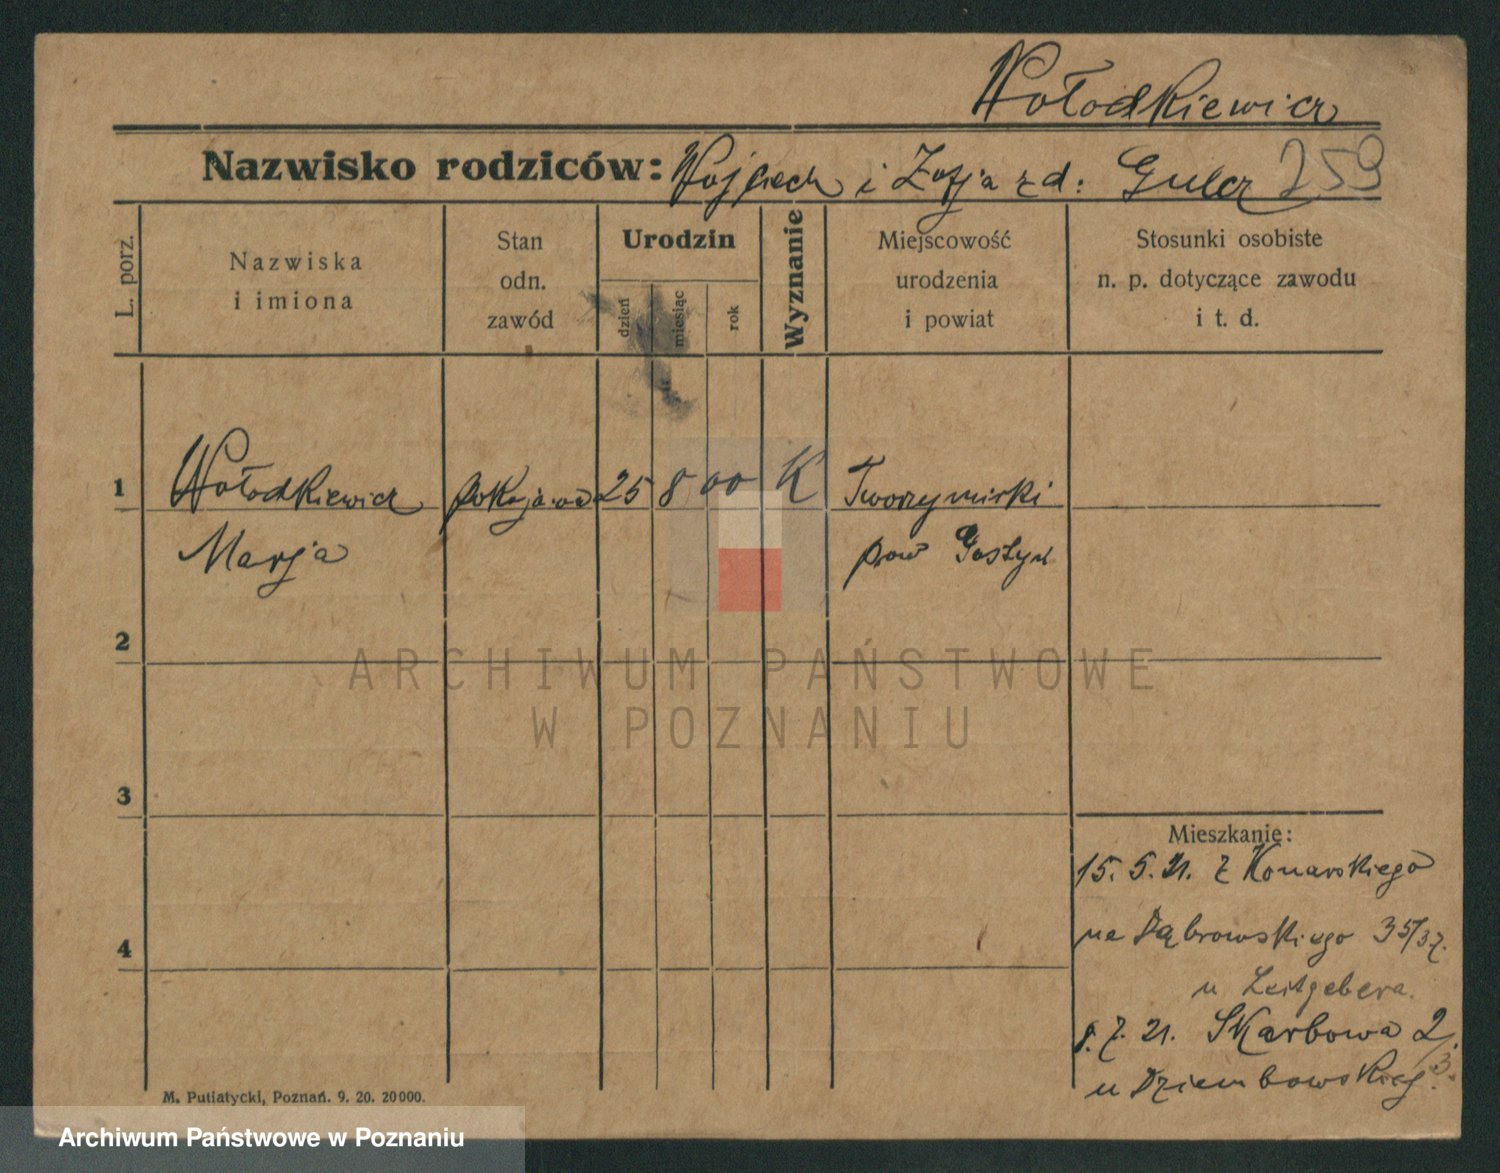 Wołodkiewicz
Nazwisko rodziców: Wojciech i Zofja z d: Gulcz 259
L. porz.
Nazwiska
i imiona
Stan
odn.
zawód
Urodzin
dzień
miesiąc
rok
Wyznanie
Miejscowość
urodzenia
i powiat
Stosunki osobiste
n. p. dotyczące zawodu
i t. d.
1 Wołodkiewicz pokojowa 25 8 00 K Tworzymirki
Marja pow Gostyń
2
3
4
Mieszkanie:
15. 5. 21. z Konarskiego
na Dąbrowskiego 35/37.
u Leitgebera.
8. 7. 21. Skarbowa 2/3.
u Dziembowskieg.
M. Putiatycki, Poznań. 9. 20. 20000.
ARCHIWUM PAŃSTWOWE
W POZNANIU
Archiwum Państwowe w Poznaniu